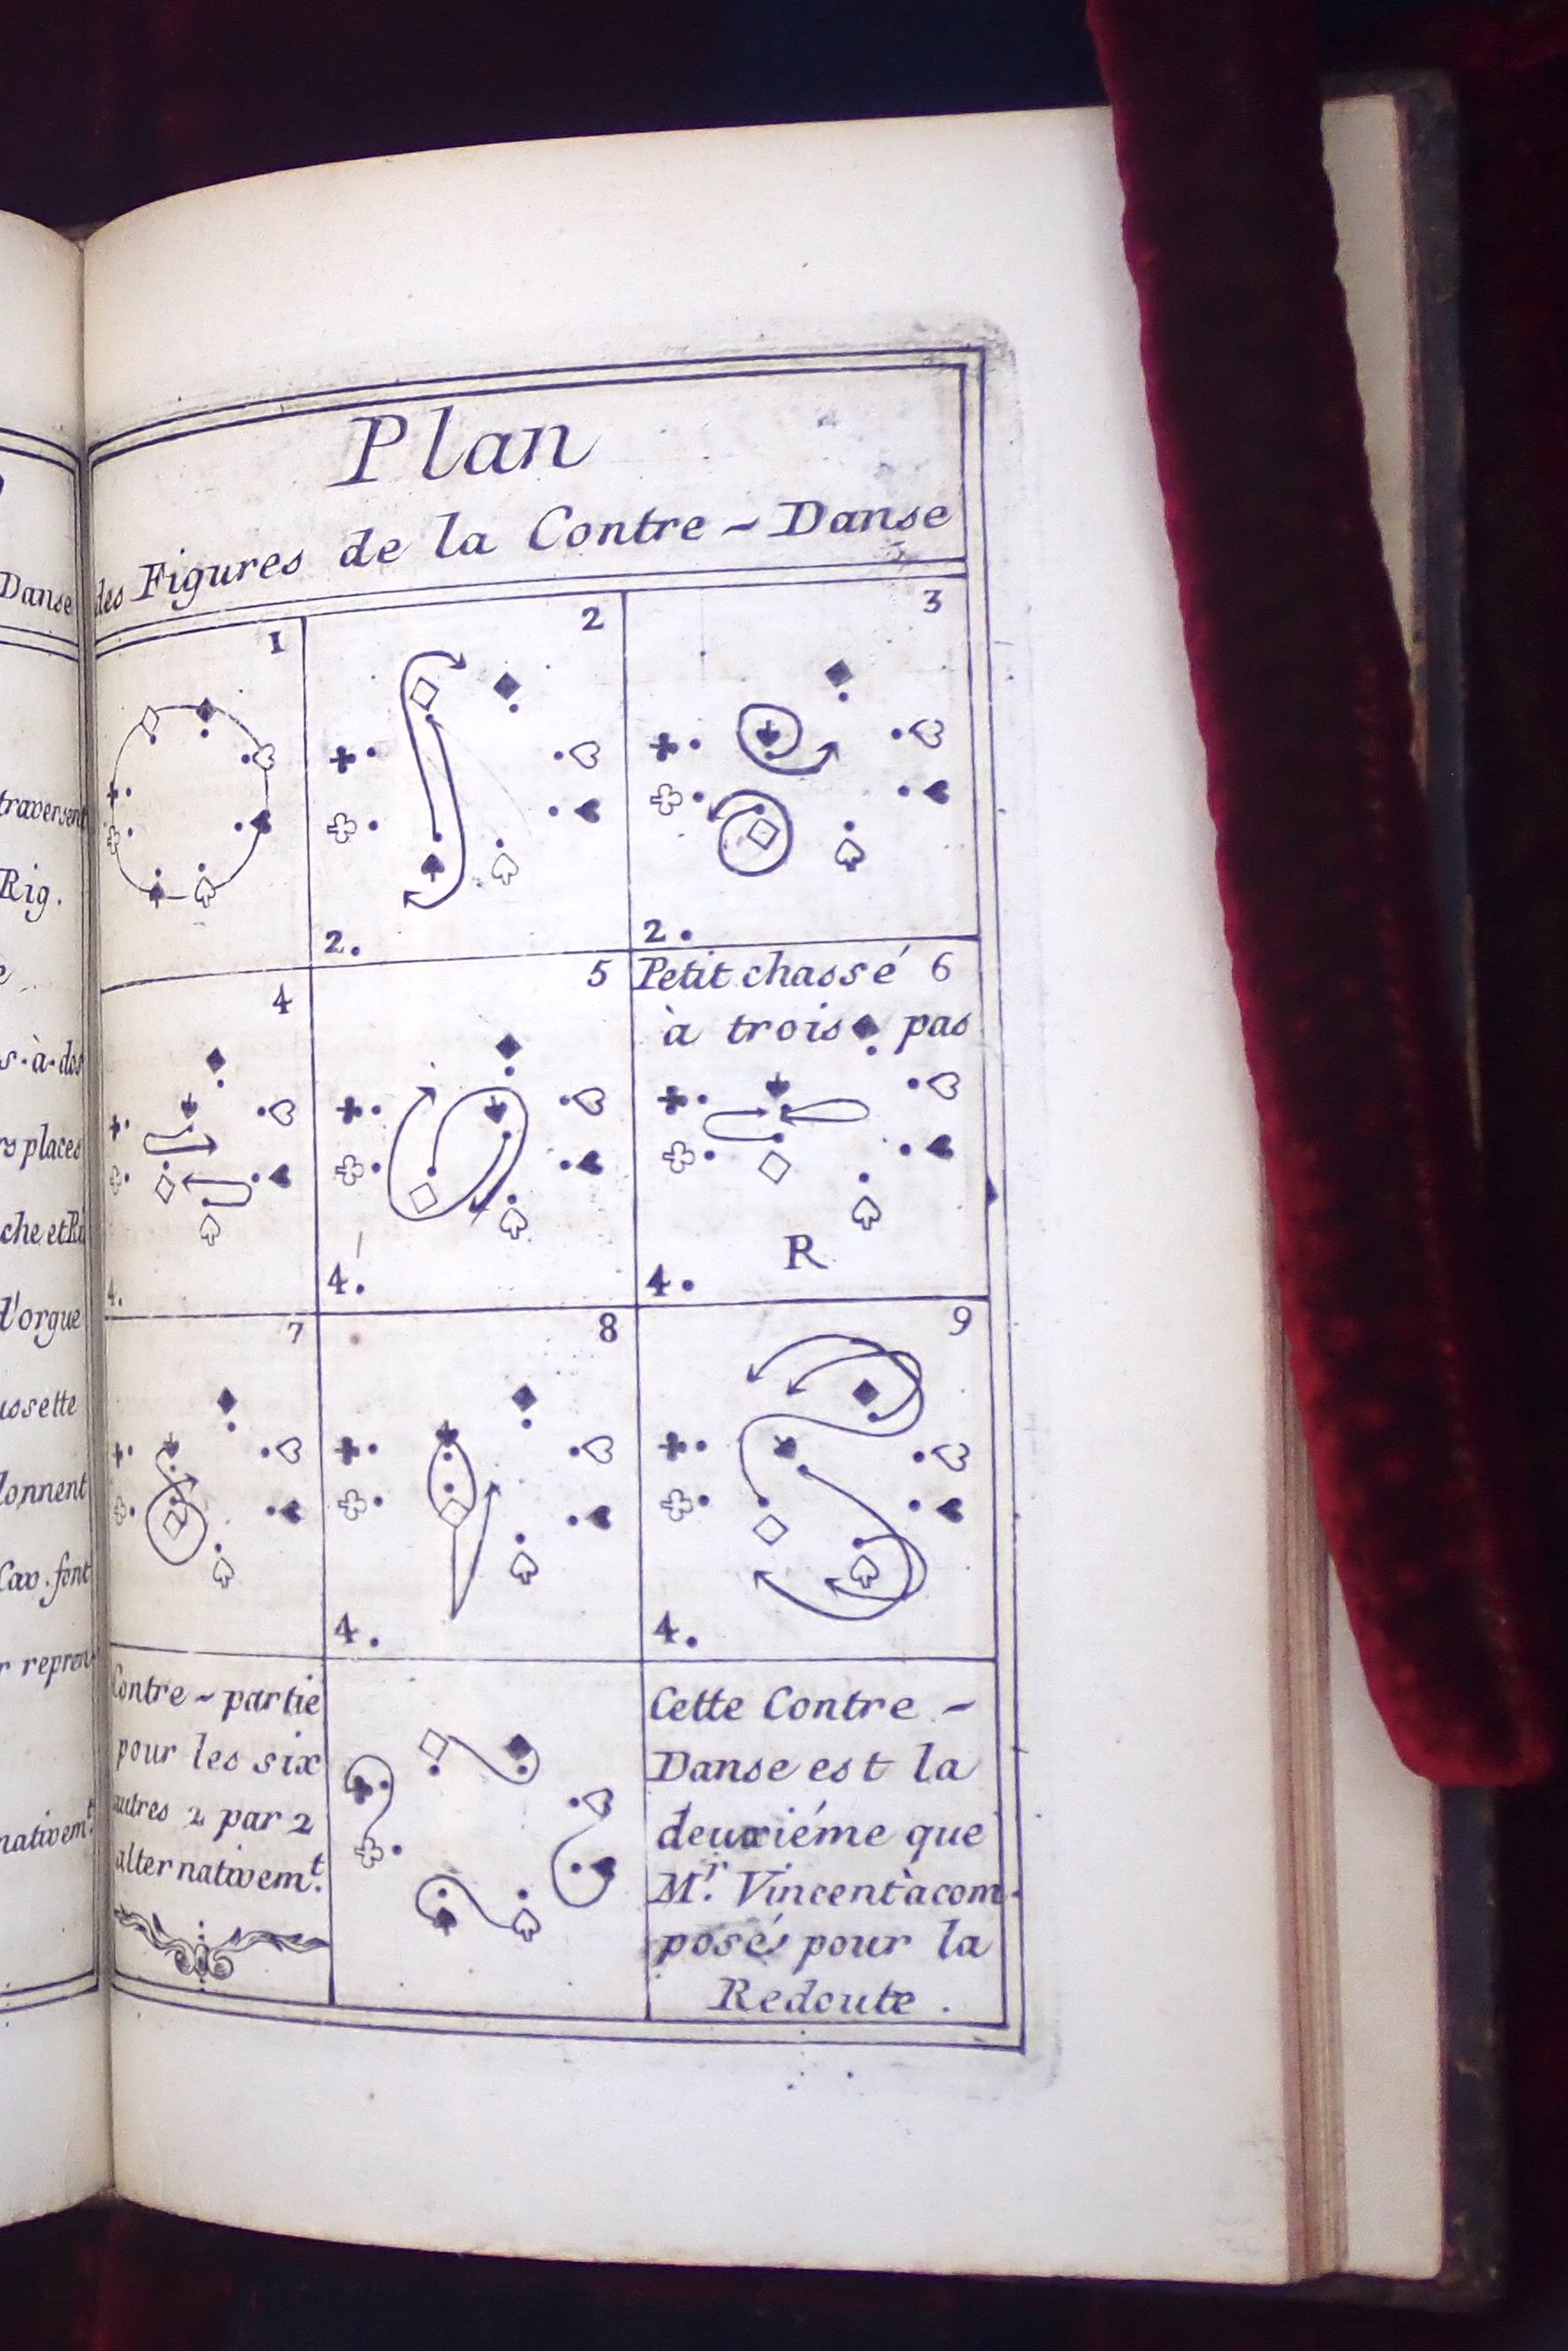 Danse
traversent
Rig.
s-à-dos
rs places
d'orgue
donnent
Cav. font
r repren
nativem.t
Plan
des Figures de la Contre - Danse
1
2
2.
3
2.
4
4.
5
4.
Petit chassé 6
à trois pas
R
4.
7
8
4.
9
4.
Contre - partie
pour les six
autres 2 par 2
alternativem.t
Cette Contre -
Danse est la
deuxiéme que
M.r Vincent à com
posés pour la
Redoute .